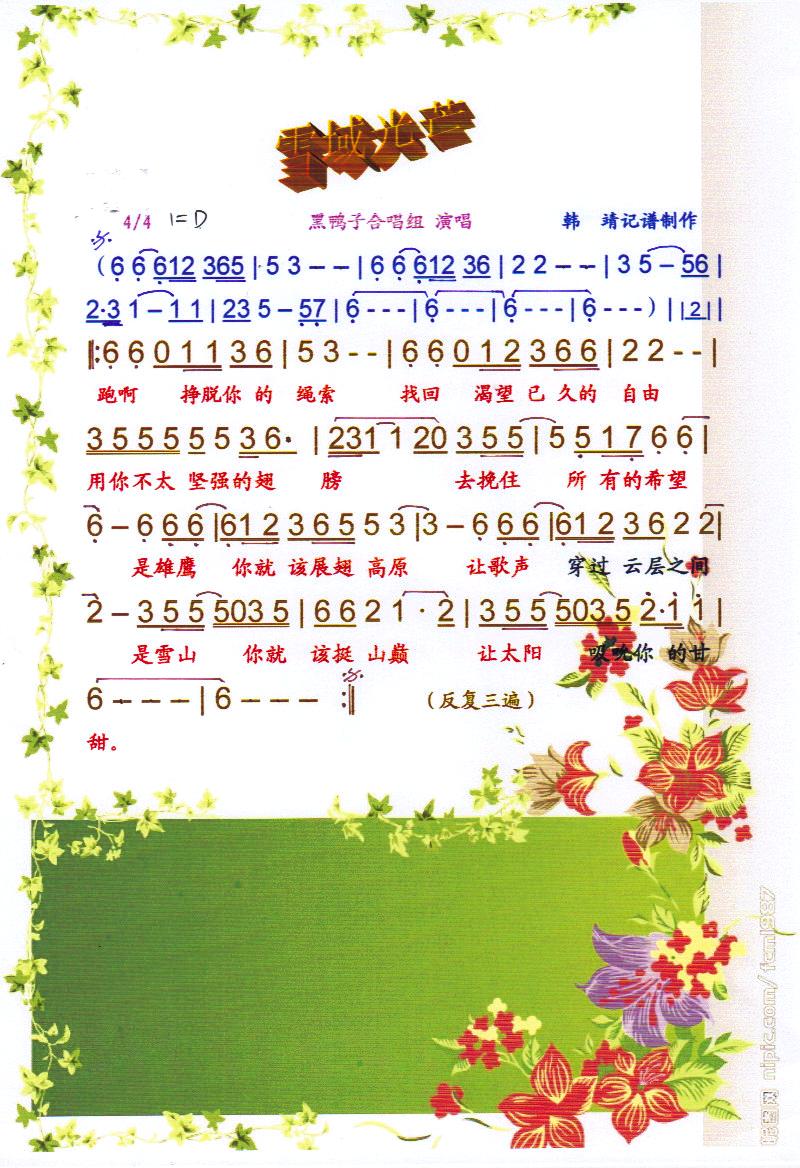 雪域光芒
4/4 1=D 黑鸭子合唱组 演唱 韩 靖记谱制作
(6 6 612 365 | 5 3 – – | 6 6 612 36 | 2 2 – – | 3 5 – 56 |
2·3 1 – 1 1 | 23 5 – 57 | 6 - - - | 6 - - - | 6 - - - | 6 - - - ) | 2 ||
‖:6 6 0 1 1 3 6 | 5 3 - - | 6 6 0 1 2 3 6 6 | 2 2 - - |
跑啊 挣脱你 的 绳索 找回 渴望 已 久的 自由
3 5 5 5 5 5 3 6· | 231 1 20 3 5 5 | 5 5 1 7 6 6 |
用你不太 坚强的翅 膀 去挽住 所 有的希望
6 – 6 6 6 | 6 1 2 3 6 5 5 3 | 3 – 6 6 6 | 6 1 2 3 6 2 2 |
是雄鹰 你就 该展翅 高原 让歌声 穿过 云层之间
2 – 3 5 5 503 5 | 6 6 2 1 · 2 | 3 5 5 503 5 2·1 1 |
是雪山 你就 该挺 山巅 让太阳 吸吮你 的甘
6 – – – | 6 – – – :‖ (反复三遍)
甜。
昵图网 nipic.com/fcml987